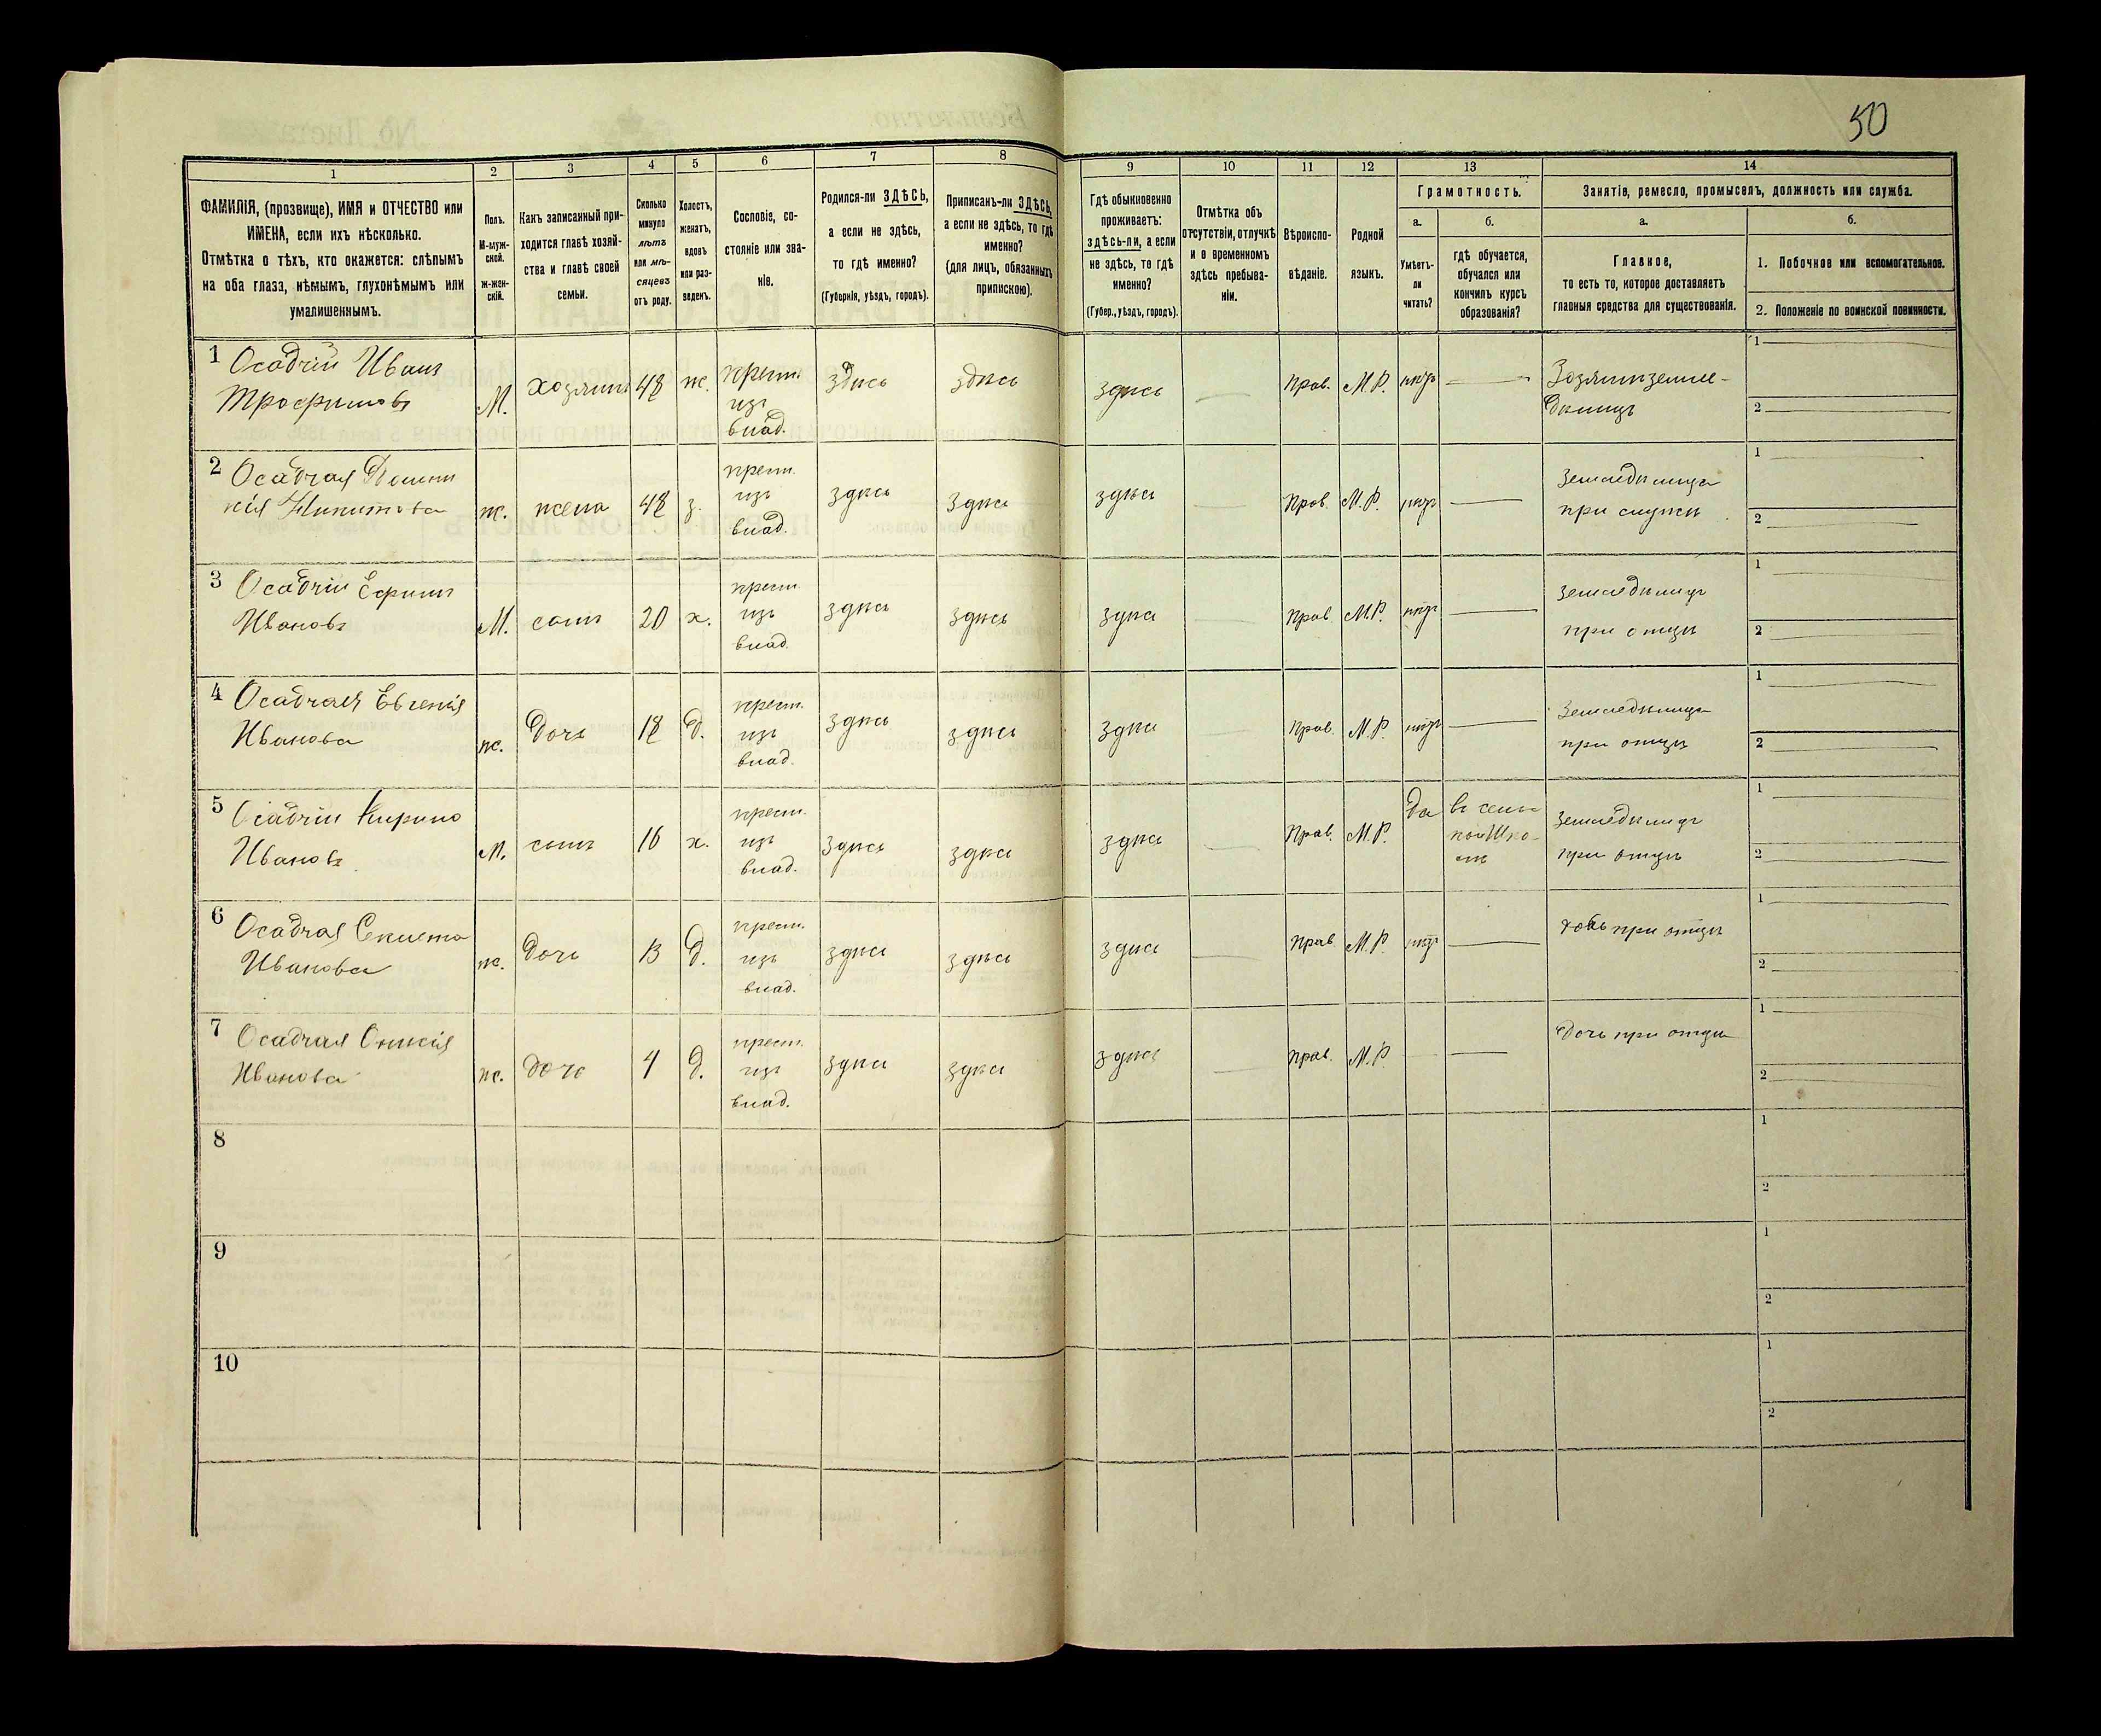 50
1 2 3 4 5 6 7 8 9 10 11 12 13 14
ФАМИЛІЯ, (прозвище), ИМЯ и ОТЧЕСТВО или
ИМЕНА, если ихъ нѣсколько.
Отмѣтка о тѣхъ, кто окажется: слѣпымъ
на оба глаза, нѣмымъ, глухонѣмымъ или
умалишеннымъ.
Полъ.
М-муж-
ской.
Ж-жен-
скій.
Какъ записанный при-
ходится главѣ хозяй-
ства и главѣ своей
семьи.
Сколько
минуло
лѣтъ
или мѣ-
сяцевъ
отъ роду.
Холостъ,
женатъ,
вдовъ
или раз-
веденъ.
Сословіе, со-
стояніе или зва-
ніе.
Родился-ли ЗДѢСЬ,
а если не здѣсь,
то гдѣ именно?
(Губернія, уѣздъ, городъ).
Приписанъ-ли ЗДѢСЬ,
а если не здѣсь, то гдѣ
именно?
(для лицъ, обязанныхъ
припискою).
Гдѣ обыкновенно
проживаетъ:
здѣсь-ли, а если
не здѣсь, то гдѣ
именно?
(Губер., уѣздъ, городъ).
Отмѣтка объ
отсутствіи, отлучкѣ
и о временномъ
здѣсь пребыва-
ніи.
Вѣроиспо-
вѣданіе.
Родной
языкъ.
Грамотность.
а. б.
Умѣетъ-
ли
читать?
гдѣ обучается,
обучался или
кончилъ курсъ
образованія?
Занятіе, ремесло, промыселъ, должность или служба.
а. б.
Главное,
то есть то, которое доставляетъ
главныя средства для существованія.
1. Побочное или вспомогательное.
2. Положеніе по воинской повинности.
1 Осадчій Иванъ
Трофимовъ
М. хозяинъ 48 ж. крест. изъ влад. здѣсь здѣсь здѣсь — Прав. М.Р. нѣтъ —
1
2
2 Осадчая
Никитова
ж. жена 48 з. крест. изъ влад. здѣсь здѣсь здѣсь — Прав. М.Р. нѣтъ — земледѣлица
при
1
2
3 Осадчій Ефимъ
Ивановъ
М. сынъ 20 х. крест. изъ влад. здѣсь здѣсь здѣсь — Прав. М.Р. нѣтъ — земледѣлецъ
при отцѣ
1
2
4 Осадчая Евгенія
Иванова
ж. дочь 18 д. крест. изъ влад. здѣсь здѣсь здѣсь — Прав. М.Р. нѣтъ — земледѣлица
при отцѣ
1
2
5 Осадчій
Ивановъ
М. сынъ 16 х. крест. изъ влад. здѣсь здѣсь здѣсь — Прав. М.Р. да земледѣлецъ
при отцѣ
1
2
6 Осадчая
Иванова
ж. дочь 13 д. крест. изъ влад. здѣсь здѣсь здѣсь — Прав. М.Р. нѣтъ — дочь при отцѣ
1
2
7 Осадчая
Иванова
ж. дочь 4 д. крест. изъ влад. здѣсь здѣсь здѣсь — Прав. М.Р. — дочь при отцѣ
1
2
8
1
2
9
1
2
10
1
2